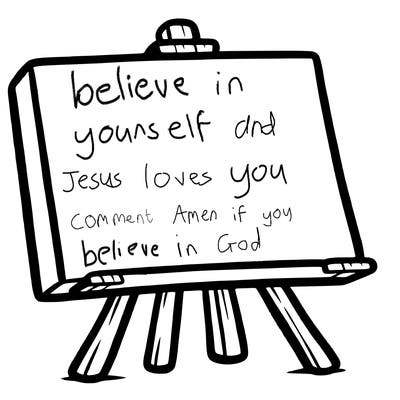 believe in
yourself and
Jesus loves you
comment Amen if you
believe in God